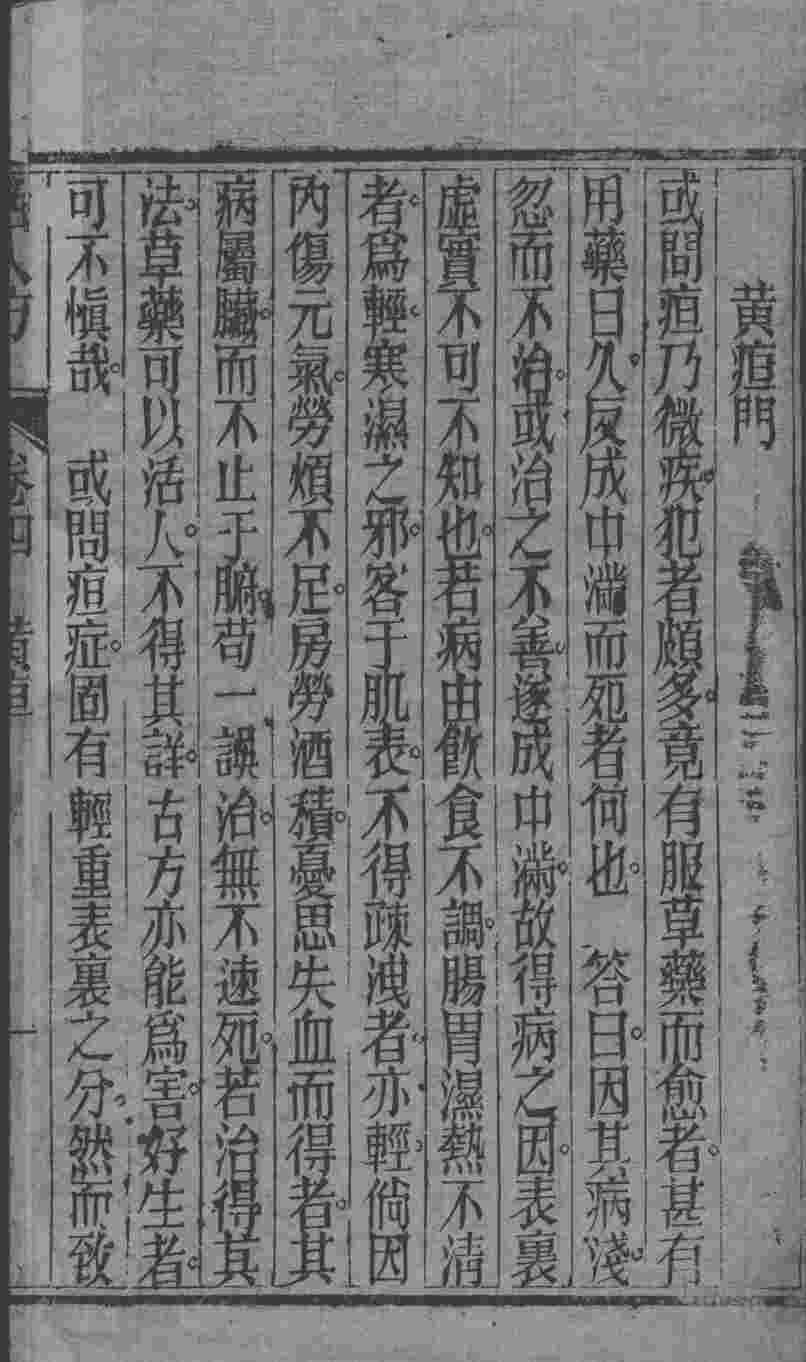 黄疸門
或問疸乃微疾。犯者頗多。竟有服草藥而愈者。甚有
用藥日久。反成中滿而死者何也。　答曰。因其病淺。
忽而不治。或治之不善。遂成中滿。故得病之因。表裏
虛實不可不知也。若病由飲食不調。腸胃濕熱不淸
者。爲輕。寒濕之邪。客于肌表。不得疎洩者。亦輕。倘因
內傷元氣。勞煩不足。房勞酒積。憂思失血而得者。其
病屬臟。而不止于腑。苟一誤治。無不速死。若治得其
法。草藥可以活人。不得其詳。古方亦能爲害。好生者。
可不愼哉。　或問疸症。固有輕重表裏之分。然而致
卷四　黄疸